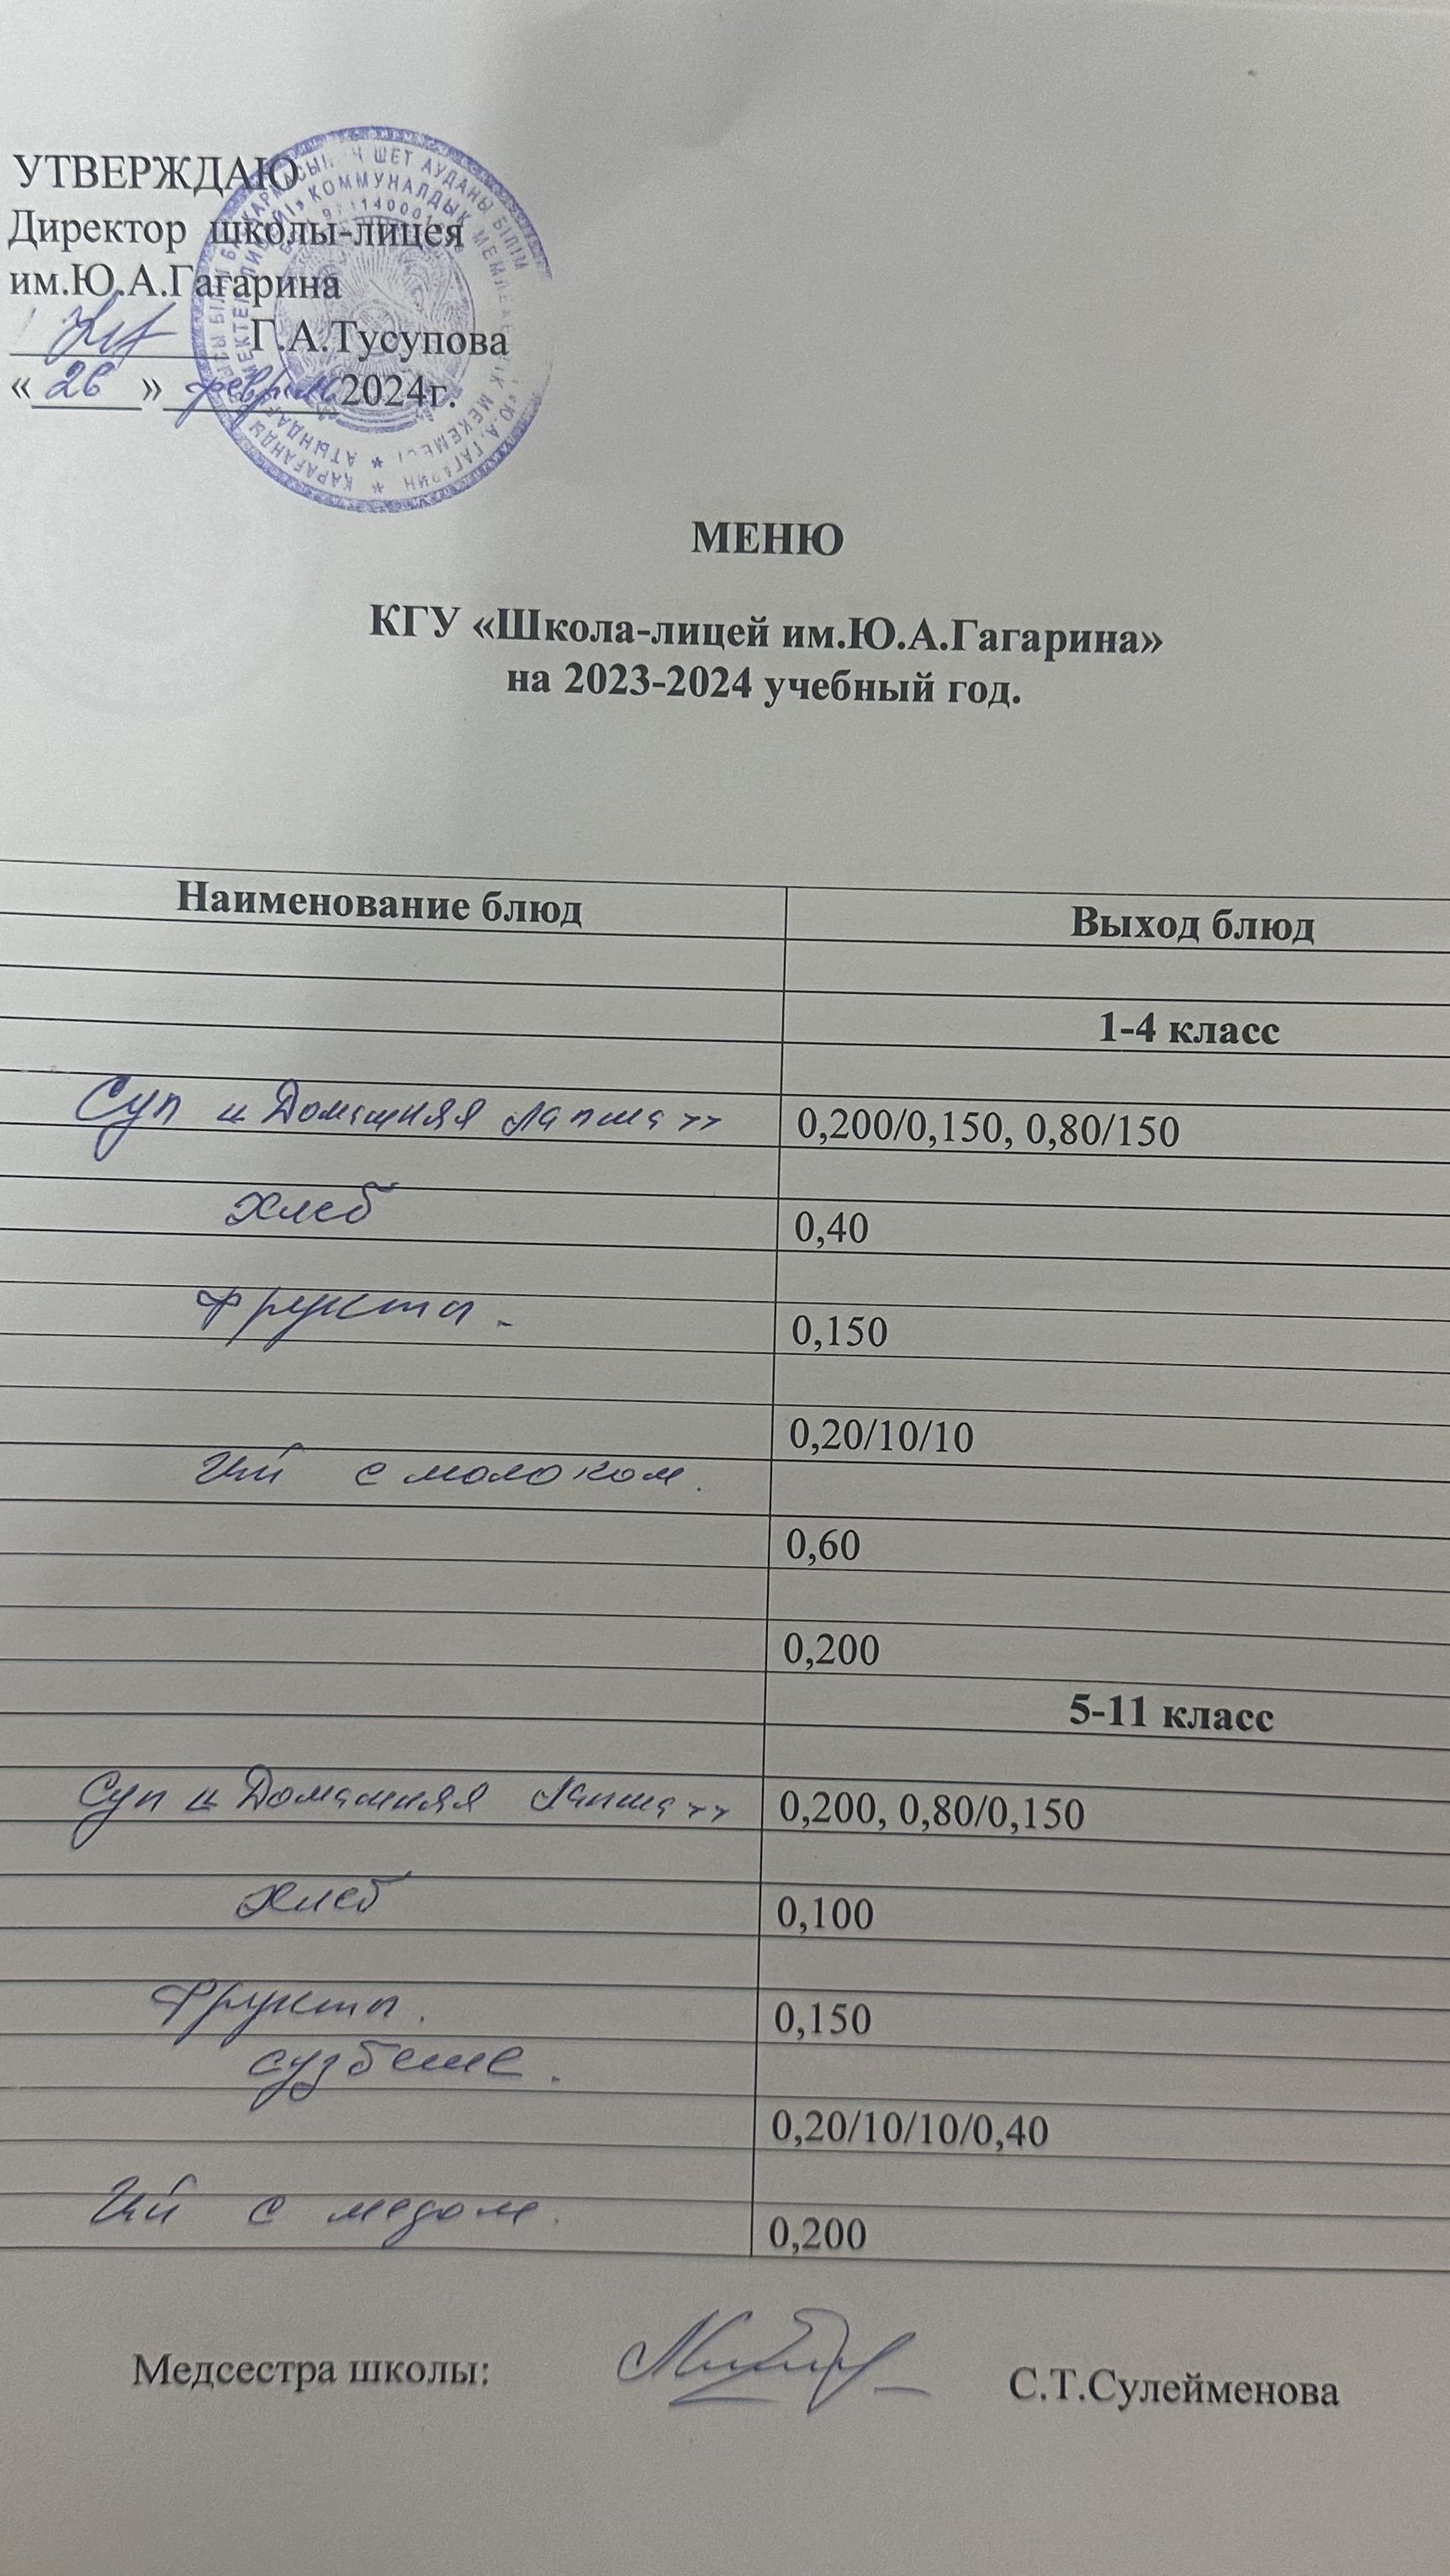 УТВЕРЖДАЮ
Директор школы-лицея
им.Ю.А.Гагарина
Г.А.Тусупова
«26» февраля 2024г.
МЕНЮ
КГУ «Школа-лицей им.Ю.А.Гагарина»
на 2023-2024 учебный год.
Наименование блюд Выход блюд
1-4 класс
Суп «Домашняя лапша» 0,200/0,150, 0,80/150
Хлеб 0,40
Фрукты. 0,150
0,20/10/10
Чай с молоком.
0,60
0,200
5-11 класс
Суп «Домашняя Лапша» 0,200, 0,80/0,150
Хлеб 0,100
Фрукты. 0,150
сузбеше.
0,20/10/10/0,40
Чай с медом. 0,200
Медсестра школы: С.Т.Сулейменова